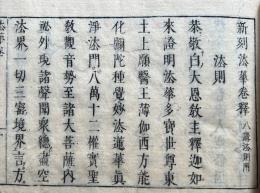 新刻法華卷釋 八講法則用
法則
恭敬白大恩教主釋迦如
來證明法華多寶世尊東
土上願醫王薄伽西方能
化彌陀種覺妙法蓮華真
淨法門八萬十二權實聖
教觀音勢至諸大菩薩內
秘外現諸聲聞衆德盡空
法界一切三寶境界言方